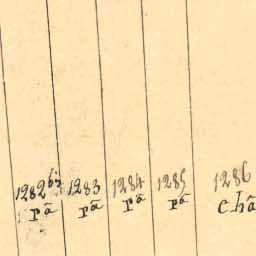 1282 bis 1283 1284 1285 1286
pã pã pã pã chã